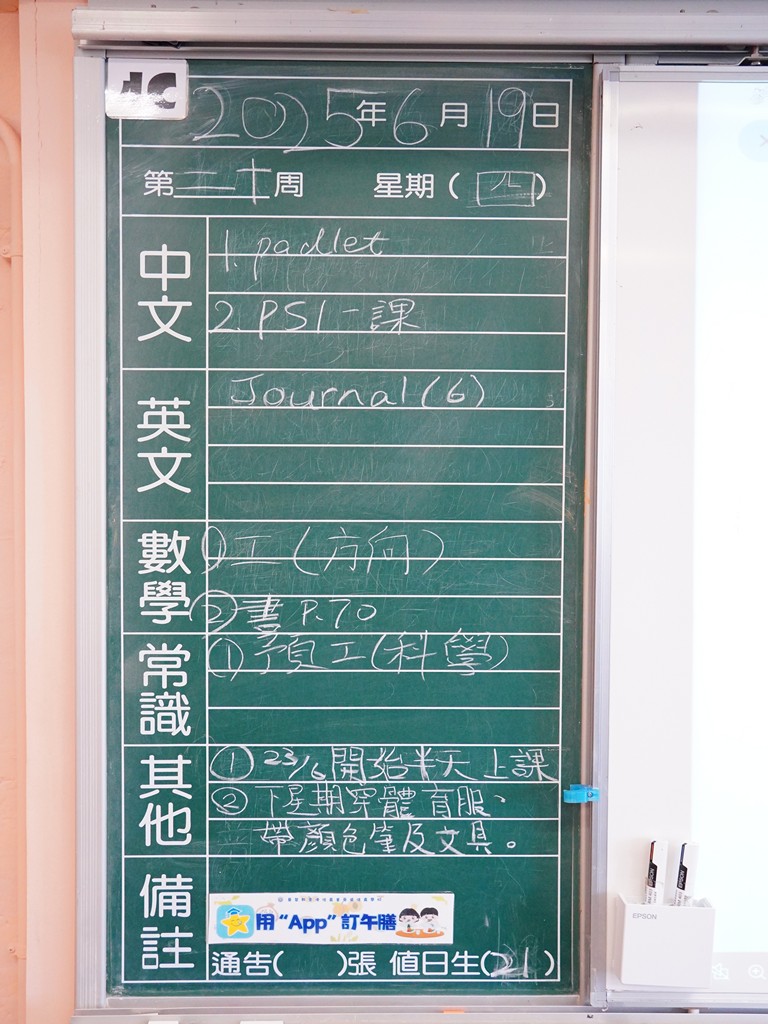 4C
2025年6月19日
第二十周 星期(四)
中文
1. padlet
2. PS1一課
英文
Journal(6)
數學
① 工(方向)
② 書 P.70
常識
① 預工(科學)
其他
① 23/6開始半天上課
② 下星期穿體育服、
帶顏色筆及文具。
備註
用“App”訂午膳
通告( )張 值日生(21)
EPSON